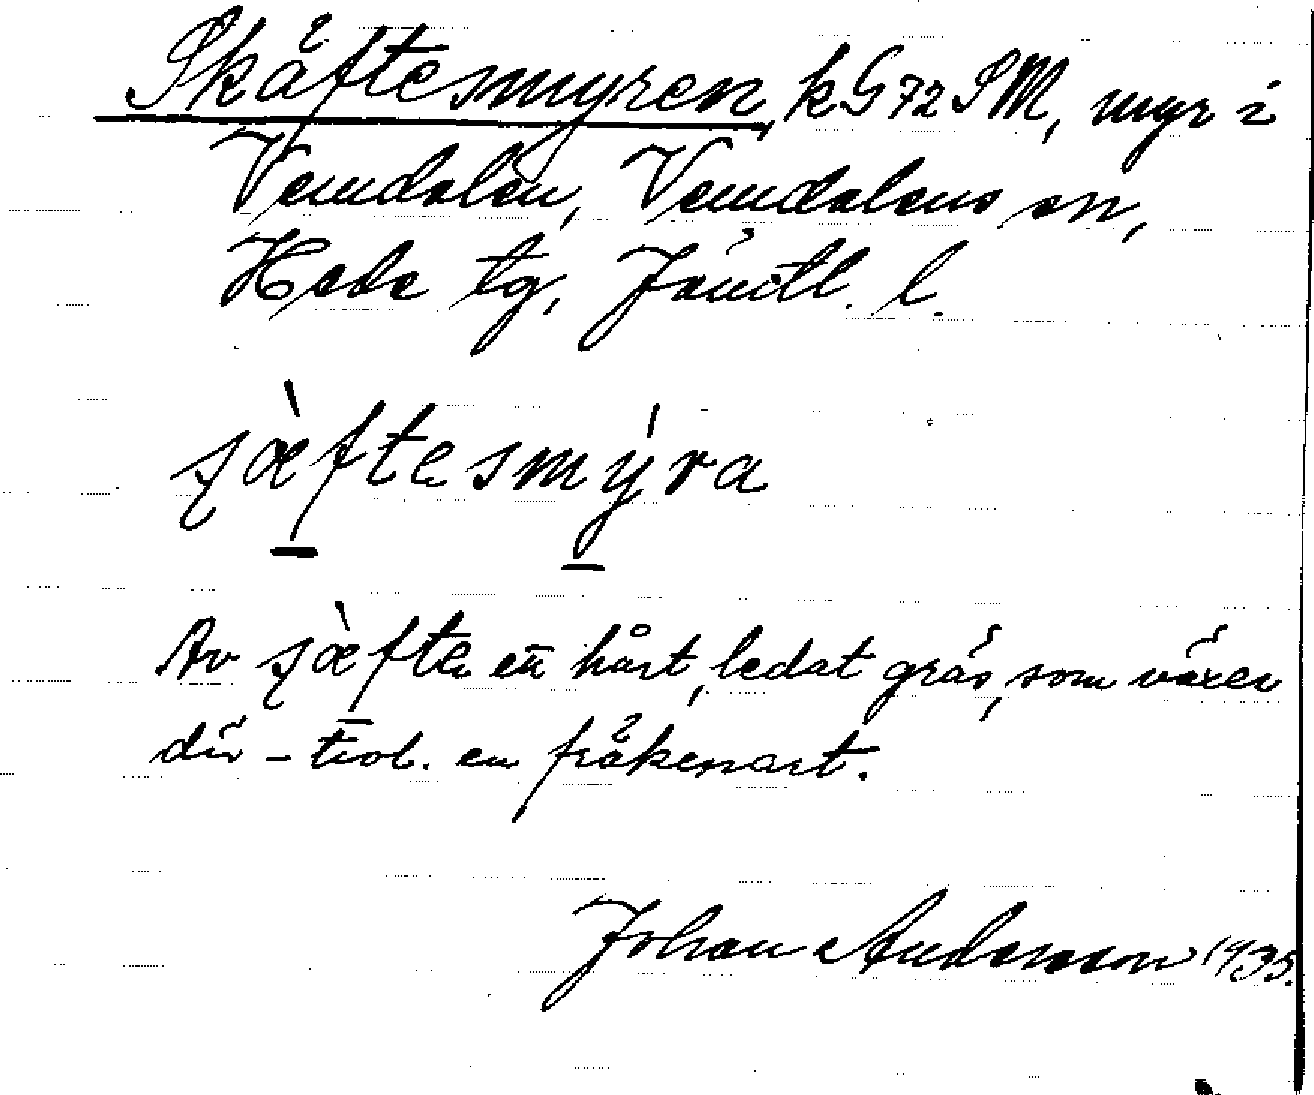 Skäftesmyren, kG72SM, myr i
Vemdalen, Vemdalens sn,
Hede tg, Jämtl. l.
ʃæ̀ftesmýra
Av ʃæ̀fte en hårt, ledat gräs, som växer
där – trol. en fräkenart.
Johan Andersson 1935.